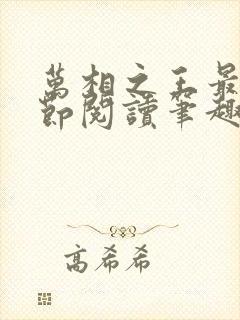 萬相之王最
節閱讀筆趣
高希希